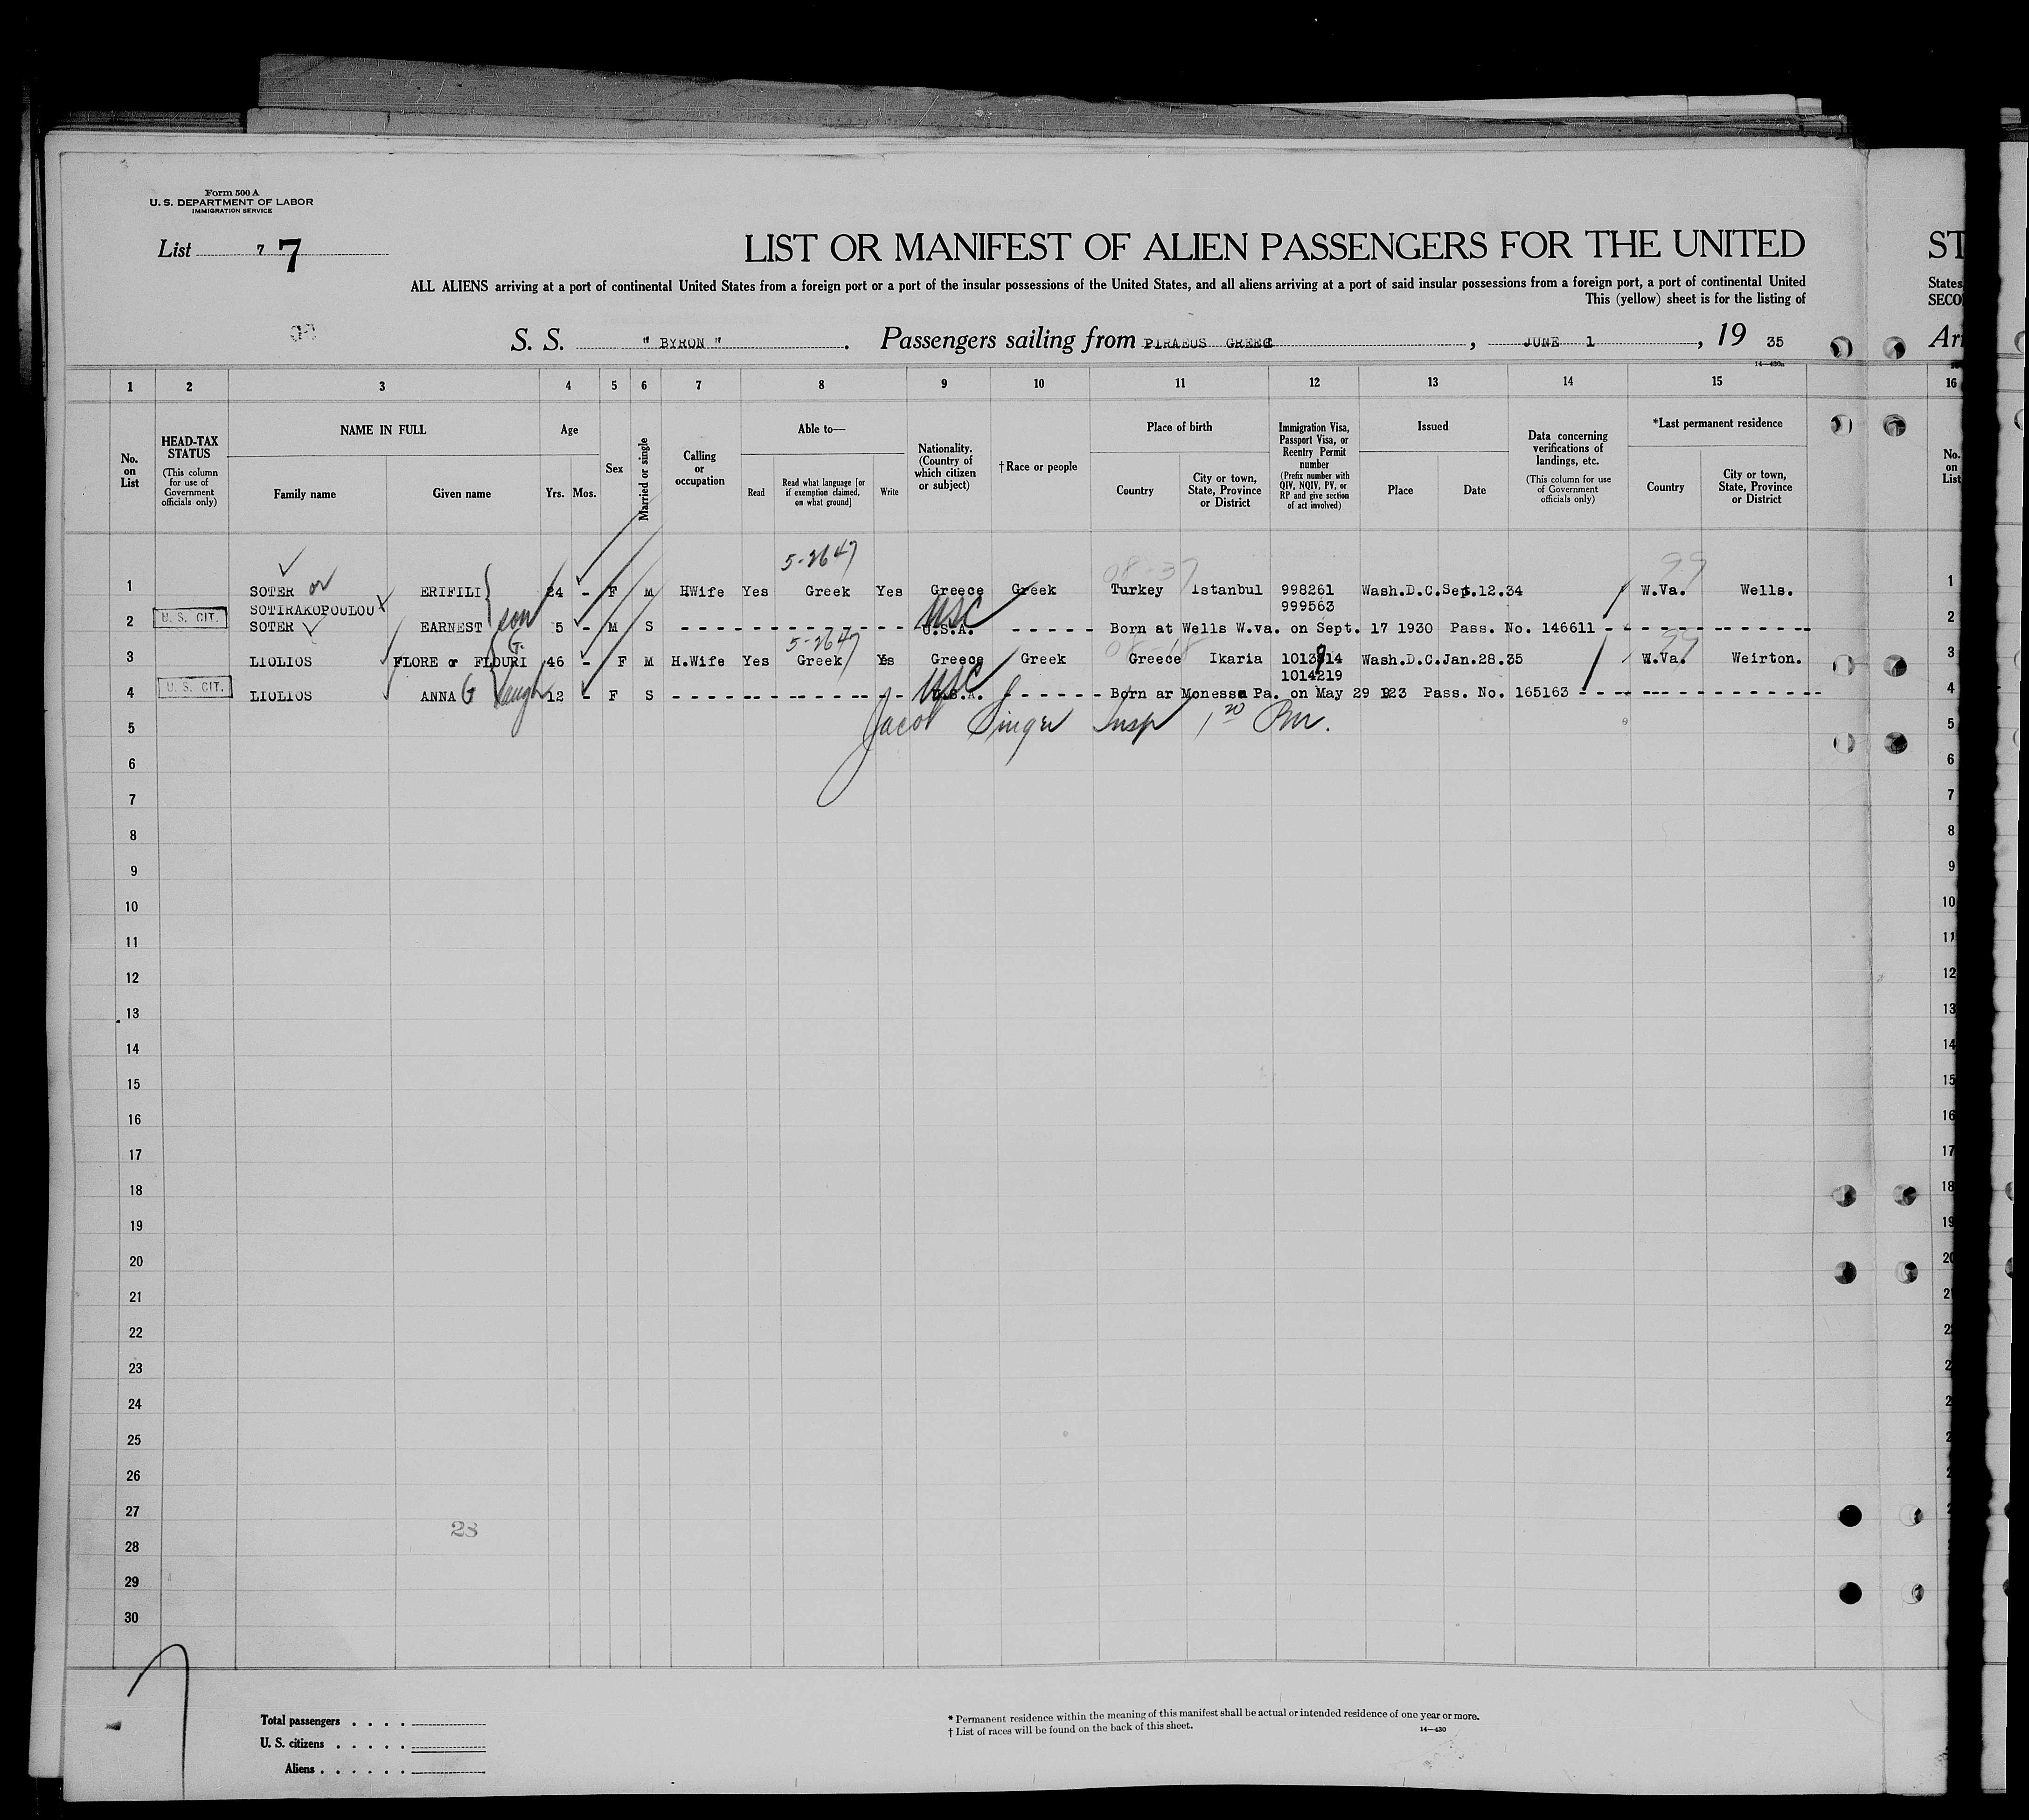 Form 500 A
U. S. DEPARTMENT OF LABOR
IMMIGRATION SERVICE
List 7 7
LIST OR MANIFEST OF ALIEN PASSENGERS FOR THE UNITED
ST
ALL ALIENS arriving at a port of continental United States from a foreign port or a port of the insular possessions of the United States, and all aliens arriving at a port of said insular possessions from a foreign port, a port of continental United
States
This (yellow) sheet is for the listing of
SECO
S. S. " BYRON " . Passengers sailing from PIRAEUS GREEC , JUNE 1 , 19 35
Arr
1 2 3 4 5 6 7 8 9 10 11 12 13 14 15 16
No. on List
HEAD-TAX STATUS (This column for use of Government officials only)
NAME IN FULL
Family name Given name
Age
Yrs. Mos.
Sex
Married or single
Calling or occupation
Able to—
Read Read what language [or if exemption claimed, on what ground] Write
Nationality. (Country of which citizen or subject)
†Race or people
Place of birth
Country City or town, State, Province or District
Immigration Visa, Passport Visa, or Reentry Permit number (Prefix number with QIV, NQIV, PV, or RP and give section of act involved)
Issued
Place Date
Data concerning verifications of landings, etc. (This column for use of Government officials only)
*Last permanent residence
Country City or town, State, Province or District
No. on List
5-2647 08-37 99
1 SOTER or ERIFILI 24 - F M HWife Yes Greek Yes Greece Greek Turkey Istanbul 998261 Wash.D.C.Sept.12.34 W.Va. Wells. 1
SOTIRAKOPOULOU 999563
2 U. S. CIT. SOTER EARNEST son 5 - M S USC U.S.A. Born at Wells W.va. on Sept. 17 1930 Pass. No. 146611 2
G. 5-2647 99
3 LIOLIOS FLORE or FLOURI 46 - F M H.Wife Yes Greek Yes Greece Greek Greece Ikaria 1013914 Wash.D.C.Jan.28.35 W.Va. Weirton. 3
1014219
4 U. S. CIT. LIOLIOS ANNA G daugh 12 - F S USC U.S.A. Born ar Monessa Pa. on May 29 1923 Pass. No. 165163 4
5 Jacob Singer Insp 1 20 Pm. 5
6 6
7 7
8 8
9 9
10 10
11 11
12 12
13 13
14 14
15 15
16 16
17 17
18 18
19 19
20 20
21 21
22
23
24
25
26
27
28
28
29
30
7
Total passengers . . . .
U. S. citizens . . . . .
Aliens . . . . . .
* Permanent residence within the meaning of this manifest shall be actual or intended residence of one year or more.
† List of races will be found on the back of this sheet. 14—430